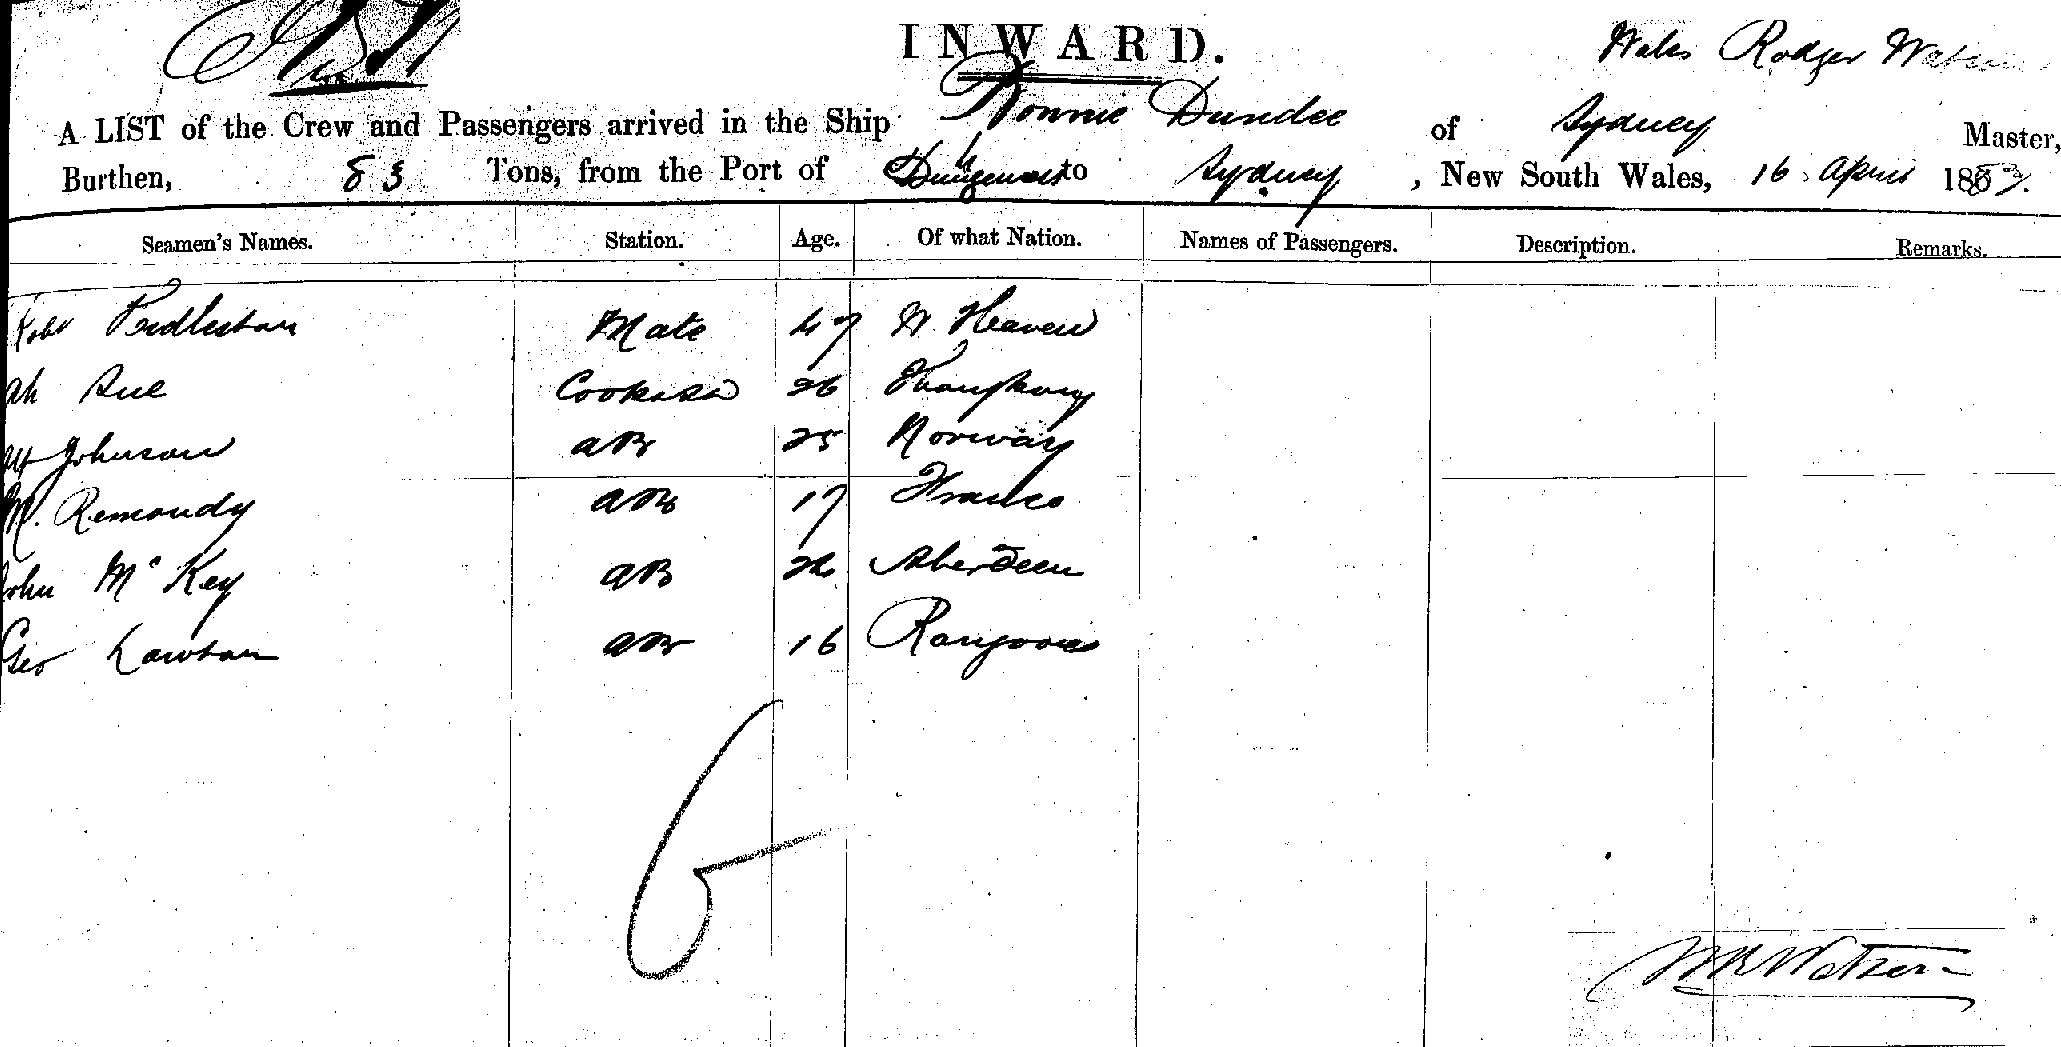 INWARD.
Wales Rodger Watson
A LIST of the Crew and Passengers arrived in the Ship Bonnie Dundee of Sydney Master,
Burthen, 83 Tons, from the Port of to Sydney, New South Wales, 16 April 188
Seamen's Names. Station. Age. Of what Nation. Names of Passengers. Description. Remarks.
Robt Mate 47 W. Heaven
Ah Sue Cook 26
Johnson AB 25 Norway
M. Remondy AB 17 France
John McKey AB Aberdeen
Geo Lawton AB 16 Rangoon
6
WRWatson